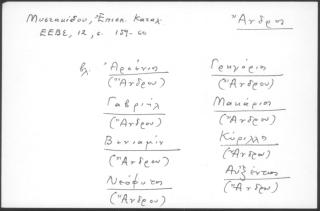 Μυστακίδου, Ἐπισκ. Καταλ.
ΕΕΒΣ, 12, σ. 159-60
Ἄνδρος
βλ. Ἀρσένιος
(Ἄνδρου)
Γαβριήλ
(Ἄνδρου)
Βενιαμίν
(Ἄνδρου)
Νεόφυτος
(Ἄνδρου)
Γρηγόριος
(Ἄνδρου)
Μακάριος
(Ἄνδρου)
Κύριλλος
(Ἄνδρου)
Αὐξέντιος
(Ἄνδρου)